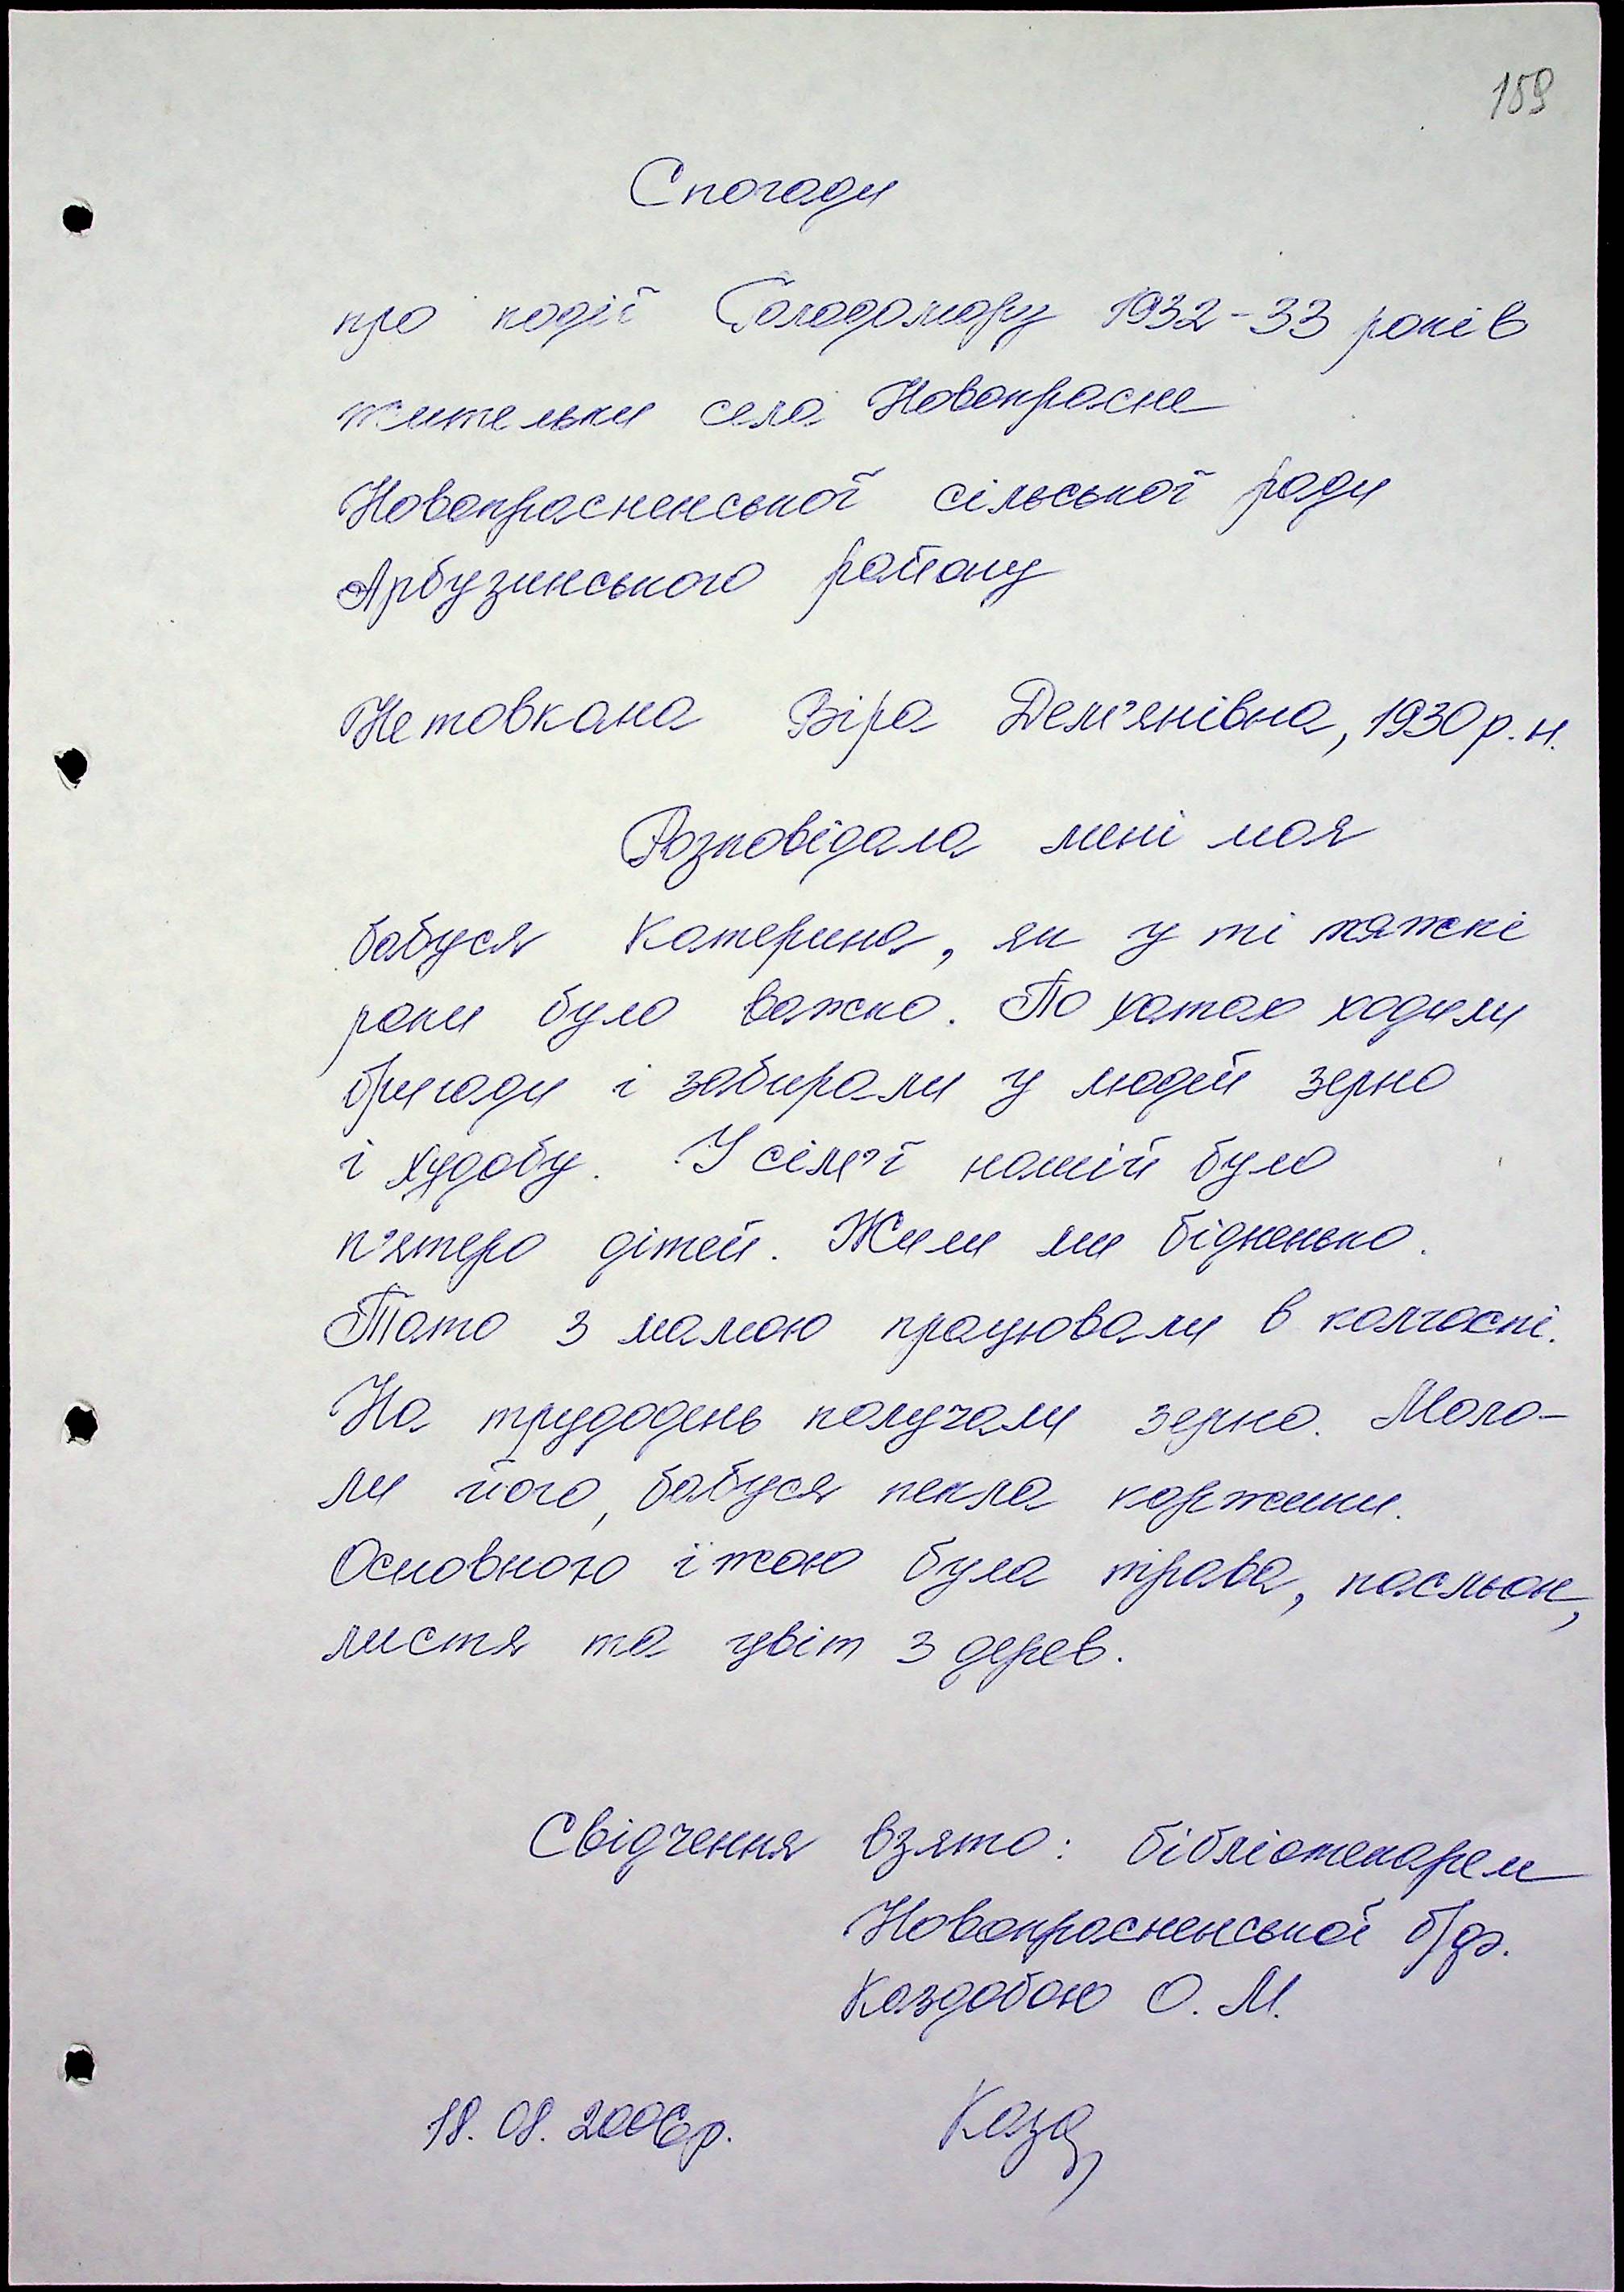 159
Спогади
про події Голодомору 1932-33 років
жительки села Новокрасне
Новокрасненської сільської ради
Арбузинського району
Нетовкана Віра Дем'янівна, 1930 р. н.
Розповідала мені моя
бабуся Катерина, як у ті тяжкі
роки було важко. По хатах ходили
бригади і забирали у людей зерно
і худобу. У сім'ї нашій було
п'ятеро дітей. Жили ми бідненько.
Тато з мамою працювали в колгоспі.
На трудодень получали зерно. Моло-
ли його, бабуся пекла коржики.
Основною їжою була трава, пасльон,
листя та цвіт з дерев.
Свідчення взято: бібліотекарем
Новокрасненської б/ф.
Каздобою О. М.
18. 08. 2006 р.
Казд